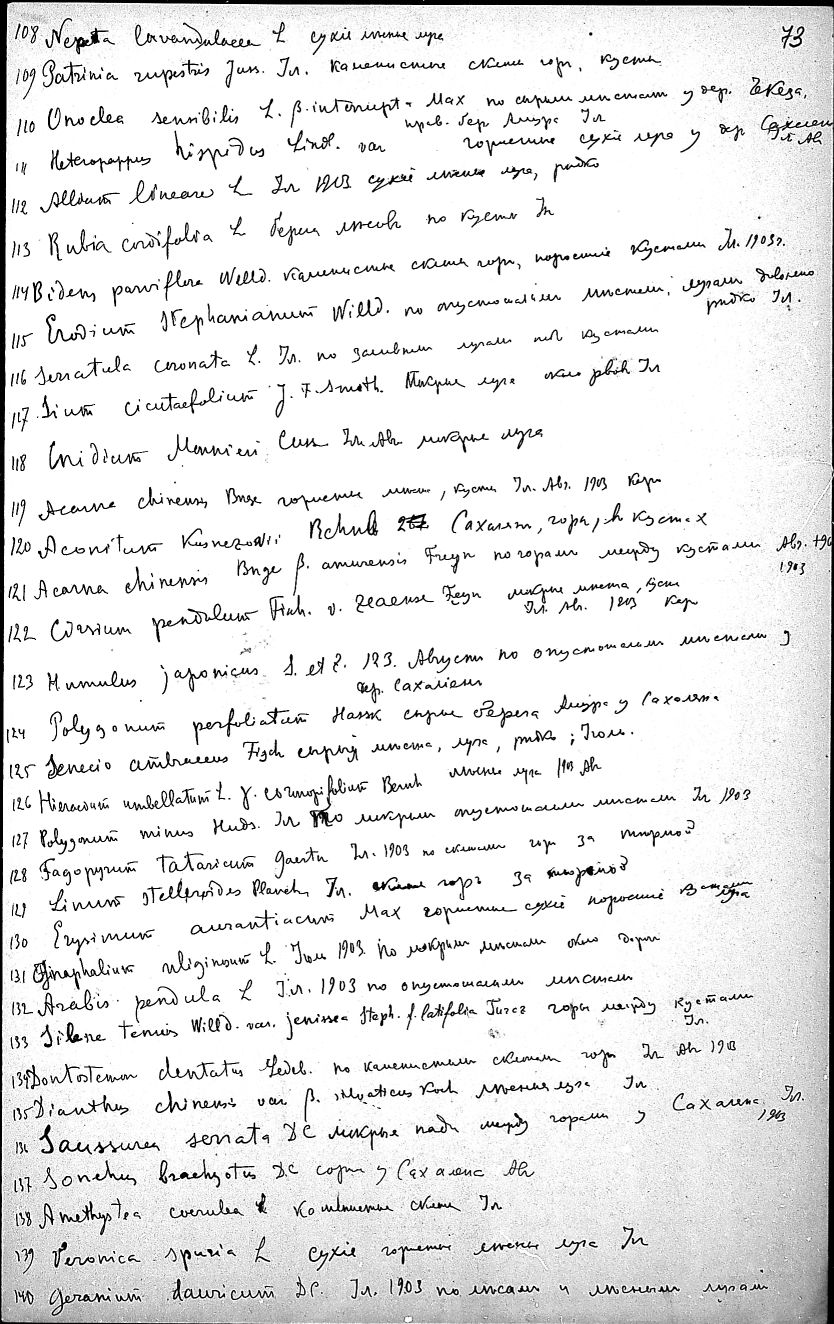 73
108 Nepeta lavandulacea L сухіе лѣсные луга
109 Patrinia rupestris Juss. Іл. каменистые скаты гор, кусты
110 Onoclea sensibilis L. β. interrupta Max по сырым мѣстам у дер. Бекеза,
прав. бер Амура Іл
111 Heteropappus hispidus Lindl. var гористые сухіе луга у дер Сахалян
Іл Ав
112 Allium lineare L Іл 1903 сухіе лѣсные луга, рѣдко
113 Rubia cordifolia L берега лѣсов по кустам Іл
114 Bidens parviflora Willd. каменистые скаты гор, поросшіе кустами Іл. 1903г.
115 Erodium Stephanianum Willd. по опустошенным мѣстам, лугам довольно
рѣдко Іл.
116 Serratula coronata L. Іл. по заливным лугам под кустами
117 Sium cicutaefolium J. F. Smith. Мокрые луга около рвов Іл
118 Cnidium Monnieri Cuss Іл. Ав. мокрые луга
119 Acarna chinensis Bnge гористые лѣсные, кусты Іл. Авг. 1903
120 Aconitum Kusnezowii Rchnb Сахалян, гора, в кустах
121 Acarna chinensis Bnge β. amurensis Freyn по горам между кустами Авг.
1903
122 Cirsium pendulum Fisch. v. zeaense Freyn мокрые мѣста,
Іл. Ав. 1903
123 Humulus japonicus S. et Z. 123. Августъ по опустошенным мѣстам у
дер. Сахалян
124 Polygonum perfoliatum Hassk сырые берега Амура у Сахаляна
125 Senecio ambraceus Fisch сырые мѣста, луга, рѣдко; Іюль.
126 Hieracium umbellatum L. γ. coronopifolium Bernh лѣсные луга 1903 Ав
127 Polygonum minus Huds. Іл по мокрым опустошенным мѣстам Іл 1903
128 Fagopyrum tataricum Gaertn Іл. 1903 по скатам гор за тюрьмой
129 Linum stelleroides Planch. Іл. скаты горъ за тюрьмой
130 Erysimum aurantiacum Max гористые сухіе поросшіе
131 Gnaphalium uliginosum L. Іюль 1903 по мокрым мѣстам около дороги
132 Arabis pendula L Іл. 1903 по опустошенным мѣстам
133 Silene tenuis Willd. var. jenissea Steph. f. latifolia Turcz горы между кустами
Іл.
134 Dontostemon dentatus Ledeb. по каменистым скатам гор Іл Ав 1903
135 Dianthus chinensis var β. silvaticus Koch лѣсные луга Іл
136 Saussurea serrata DC мокрые пади между горами у Сахаляна Іл.
1903
137 Sonchus brachyotus DC сорн у Сахаляна Ав
138 Amethystea coerulea L каменистые скаты Іл
139 Veronica spuria L сухіе гористые лѣсные луга Іл
140 Geranium dauricum DC. Іл. 1903 по лѣсам и лѣсным лугам